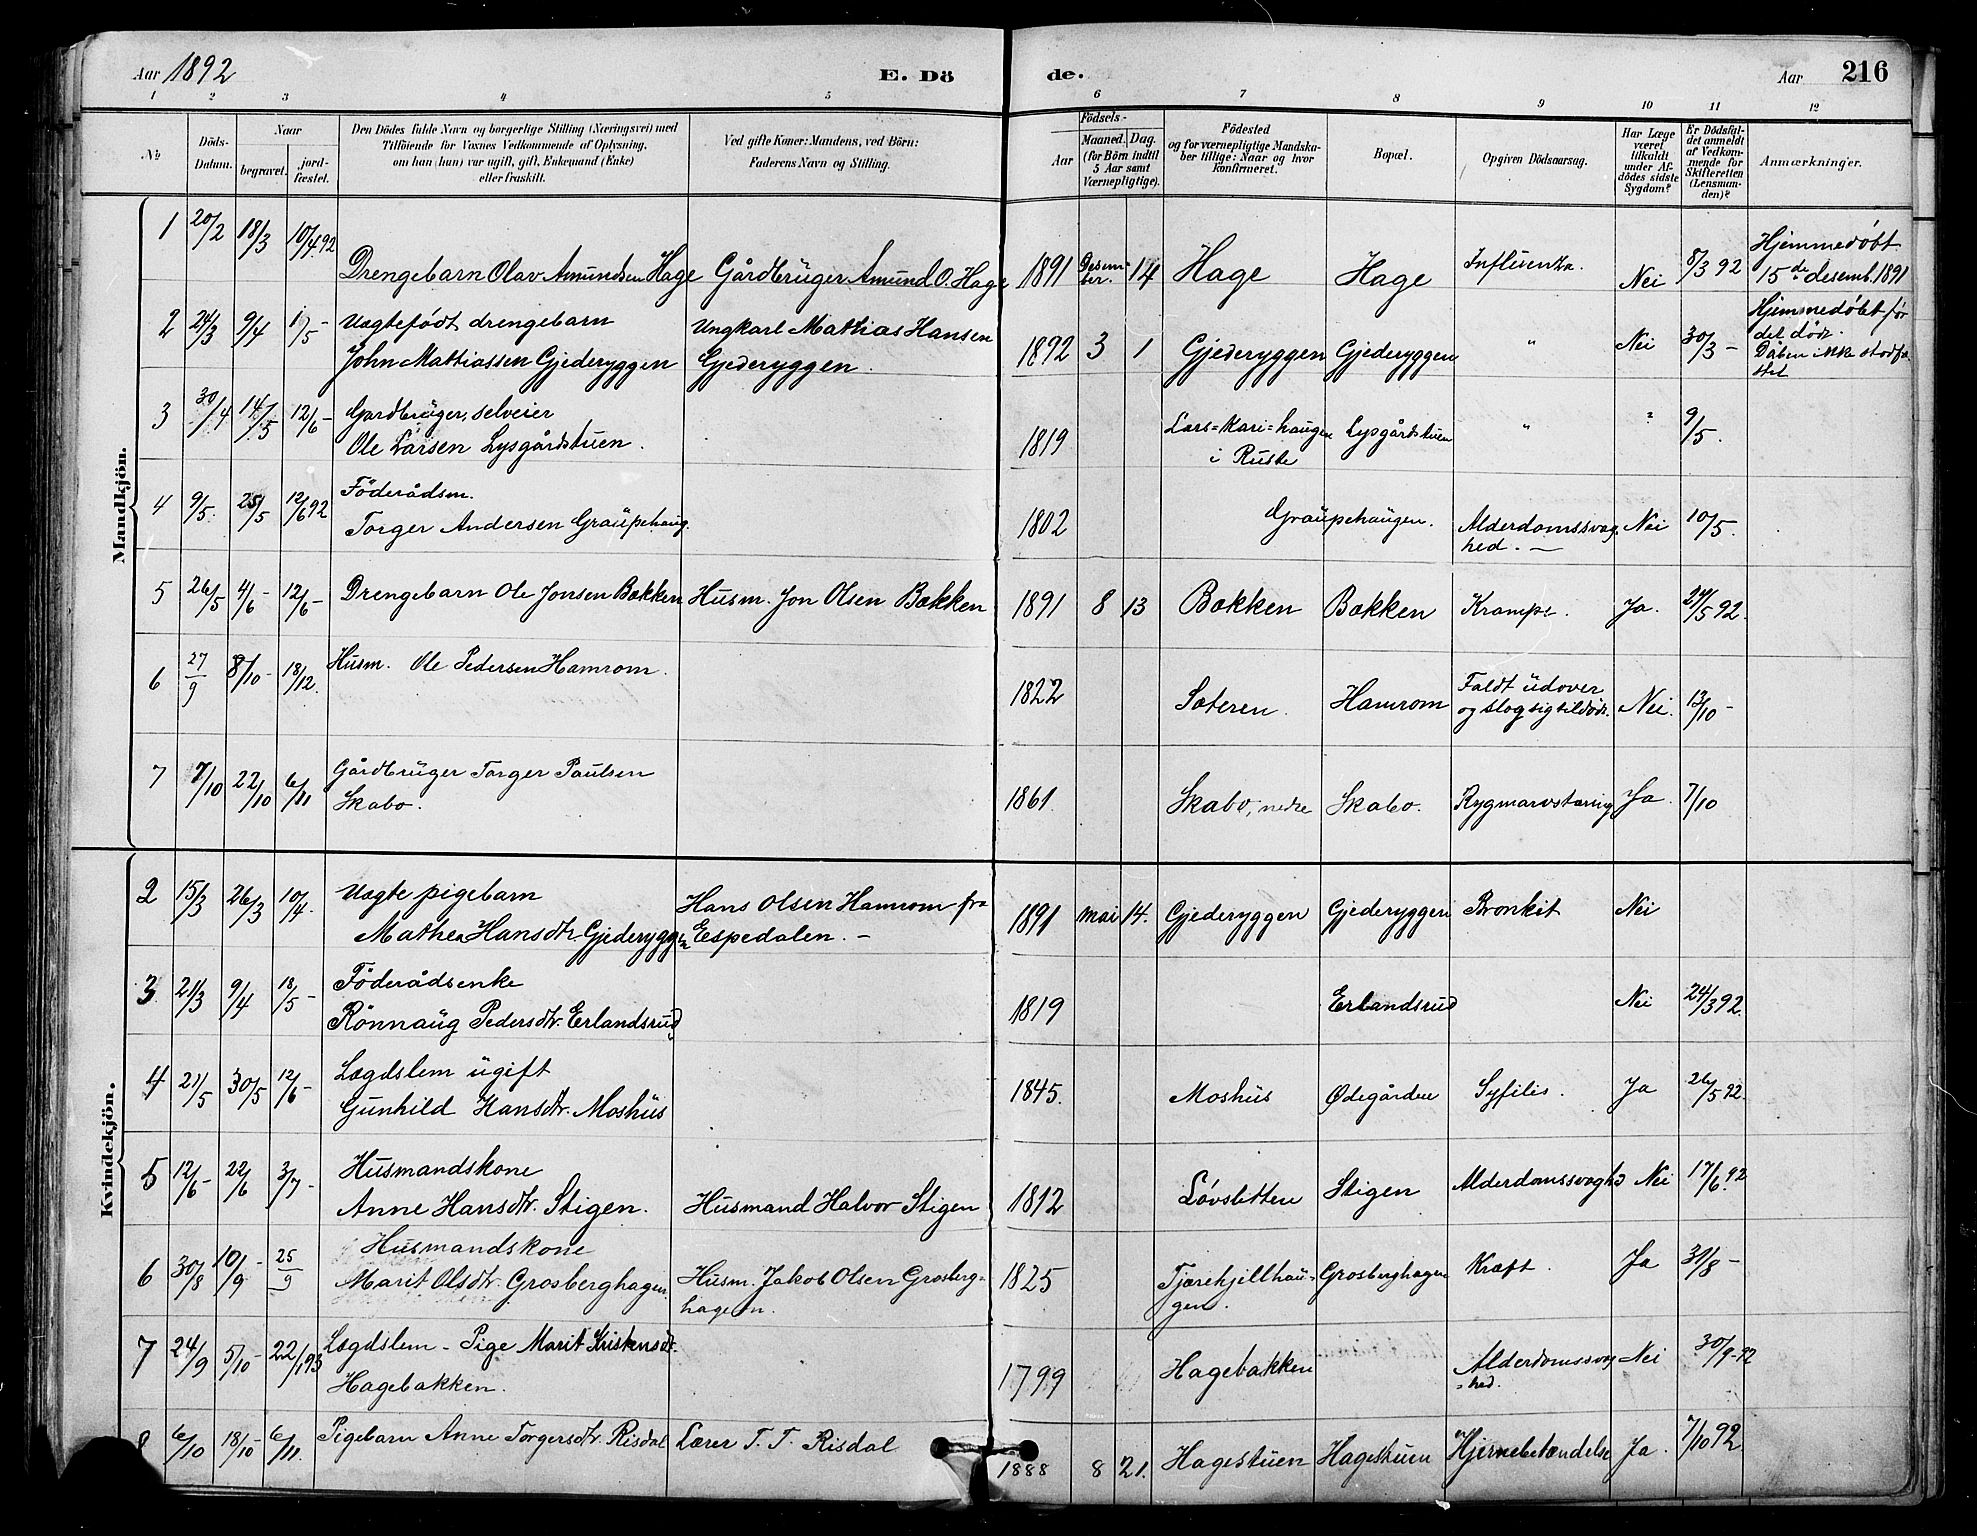 Aar 1892 E. Dö de. Aar 216
1 2 3 4 5 6 7 8 9 10 11 12
No
Döds-Datum.
Naar
begravet.
jord-fæstet.
Den Dödes fulde Navn og borgerlige Stilling (Næringsvei) med
Tilföiende for Voxnes Vedkommende af Oplysning,
om han (hun) var ugift, gift, Enkemand (Enke)
eller fraskilt.
Ved gifte Koner: Mandens, ved Börn:
Faderens Navn og Stilling.
Födsels-
Aar
Maaned. Dag.
(for Börn indtil
5 Aar samt
Værnepligtige).
Födested
og for værnepligtige Mandska-
ber tillige: Naar og hvor
konfirmeret.
Bopæl.
Opgiven Dödsaarsag.
Har Læge
været
tilkaldt
under Af-
dödes sidste
Sygdom?
Er Dödsfal-
det anmeldt
af Vedkom-
mende for
Skifteretten
(Lensman-
den)?
Anmærkninger.
Mandkjön.
1 20/2 18/3 10/4 92 Drengebarn Olav Amundsen Hage Gårdbrüger Amund O. Hage 1891 Desember. 14 Hage Hage Influenza. Nei 8/3 92 Hjemmedøbt
15de desemb. 1891
2 24/3 9/4 Uægtefødt drengebarn Ungkarl Mathias Hansen Hjemmedøbt før
John Mathiassen Gjederyggen Gjederyggen. 1892 3 1 Gjederyggen Gjederyggen " Nei 30/3 – det døde.
Dåben ikke stadfæ
stet
3 30/4 14/5 12/6 – Gardbrüger, selveier
Ole Larsen Lysgårdstuen. 1819 Lars=Kari=haugen Lysgårdstuen " " 9/5.
i Ruste
4 9/5. 25/5 12/6 92 Föderådsm.
Torger Andersen Graüpehaug. 1802 Graüpehaugen. Alderdomssvag- Nei 10/5.
hed. –
5 26/5 4/6 – 12/6 – Drengebarn Ole Jonsen Bakken Husm. Jon Olsen Bakken 1891 8 13 Bakken Bakken Krampe. Ja. 5 92.
6 27/9 8/10 – 18/12. Husm. Ole Pedersen Hamrom. 1822 Sæteren. Hamrom Faldt üdover
og slog sig tildøde. Nei. 13/10 –
7 7/10 22/10 6/11 Gårdbrüger Torger Paulsen
Skabo. 1861. Skabo, nedre Skabo. Rygmarvstæring Ja. 7/10
Kvindekjön.
2 15/3 26/3 10/4. Uægte pigebarn Hans Olsen Hamrom fra
Mathea Hansdtr Gjederyggen Espedalen. – 1891 Mai 14. Gjederyggen Gjederyggen Bronkit Nei
3 21/3 9/4 18/5 – Föderådsenke
Rönnaüg Pedersdtr. Erlandsrud 1819 Erlandsrud Nei 24/3 92.
4 21/5 30/5 12/6 – Lægdslem ügift
Gunhild Hansdtr. Moshüs 1845. Moshüs Ødegården Syfilis. Ja 26/5 92.
5 12/6 – 22/6 3/7 – Husmandskone
Anne Hansdtr. Stigen. Husmand Halvor Stigen 1812 Løvsletten Stigen Alderdomssvagh Nei 17/6 92
6 30/8 10/9 – 25/9 Husmandskone
Marit Olsdtr. Grosberghagen Husm. Jakob Olsen Grosberg- 1825 Tjærekjillhau- Grosberghagen Kræft. Ja 31/8 –
hagen. gen.
7 24/9 5/10 – 22/1 93 Lægdslem – Pige Marit Kristensdtr.
Hagebakken. 1799 Hagebakken Alderdomssvag Nei 30/9 – 92
=hed.
8 6/10 18/10 – 6/11. Pigebarn Anne Torgersdtr. Risdal Lærer T. T. Risdal 1888 8 21. Hagestüen Hagestuen Hjernebetændelse Ja. 7/10 92.